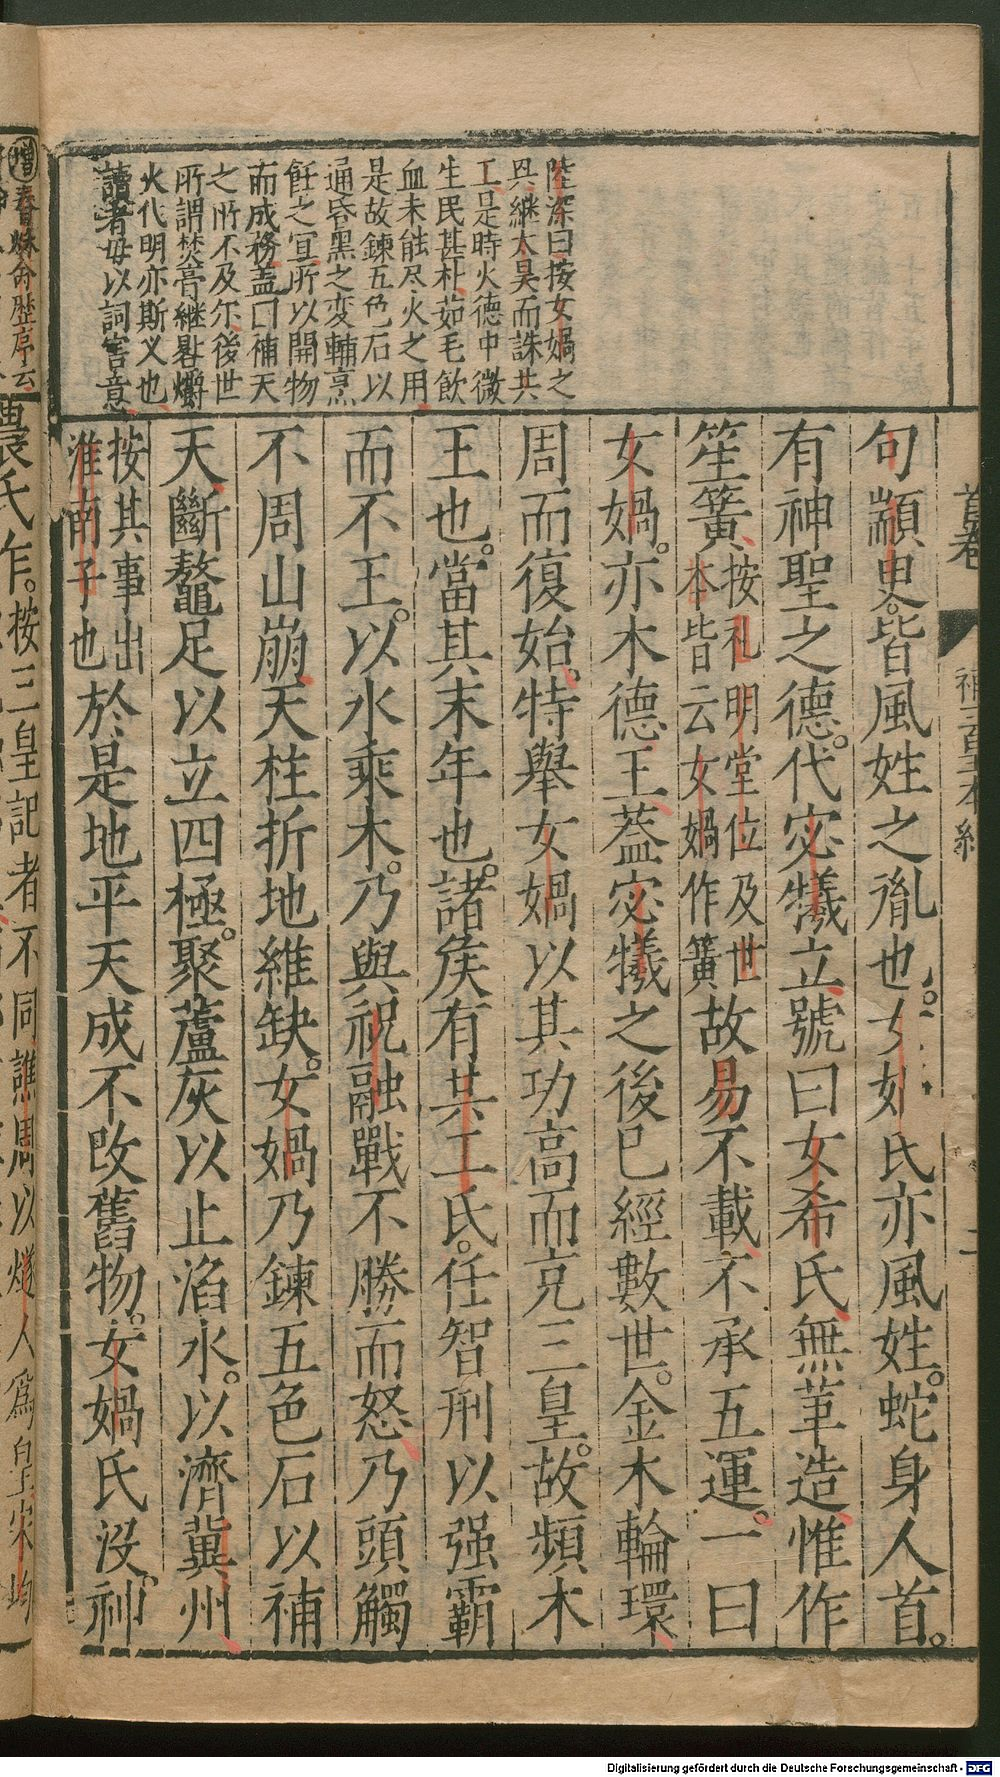 首卷 補三皇本紀 二
陸深曰按女媧之
興継太昊而誅共
工是時火德中微
生民甚朴茹毛飲
血未能尽火之用
是故鍊五色石以
通昏黑之変輔烹
飪之宜所以開物
而成務盖曰補天
之所不及尔後世
所謂焚膏継晷爝
火代明亦斯义也
讀者毋以詞害意
句顓臾皆風姓之胤也女
氏亦風姓蛇身人首
有神聖之德代宓犧立號曰女希氏無革造惟作
笙簧按礼明堂位及世本皆云女媧作簧故易不載不承五運一曰
女媧亦木德王蓋宓犧之後已經數世金木輪環
周而復始特舉女媧以其功高而充三皇故頻木
王也當其末年也諸侯有共工氏任智刑以强霸
而不王以水乘木乃與祝融戰不勝而怒乃頭觸
不周山崩天柱折地維缺女媧乃鍊五色石以補
天斷鼇足以立四極聚蘆灰以止滔水以濟冀州
按其事出淮南子也於是地平天成不改舊物女媧氏沒神
增春秋命歴序云
農氏作按三皇記者不同譙周以燧人爲皇宋均
Digitalisierung gefördert durch die Deutsche Forschungsgemeinschaft - DFG